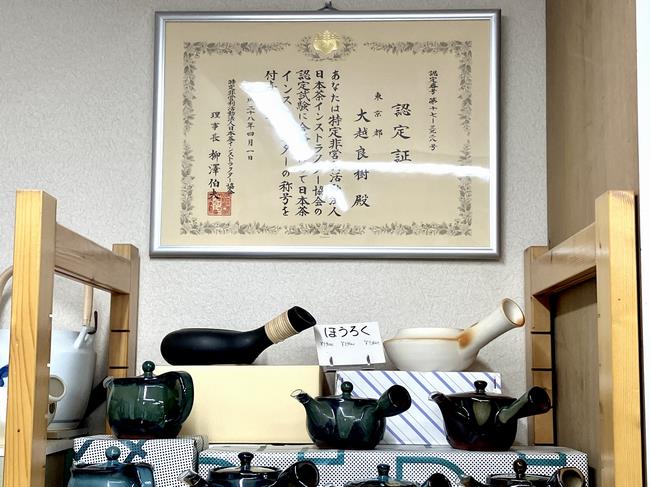 認定番号 第十七-三三八号
認定証
東京都
大越良樹 殿
あなたは特定非営利活動法人
日本茶インストラクター協会の
認定試験に合 て日本茶
インス ターの称号を
付
二十八年四月一日
特定非営利活動法人日本茶インストラクター協会
理事長 柳澤伯夫
ほうろく